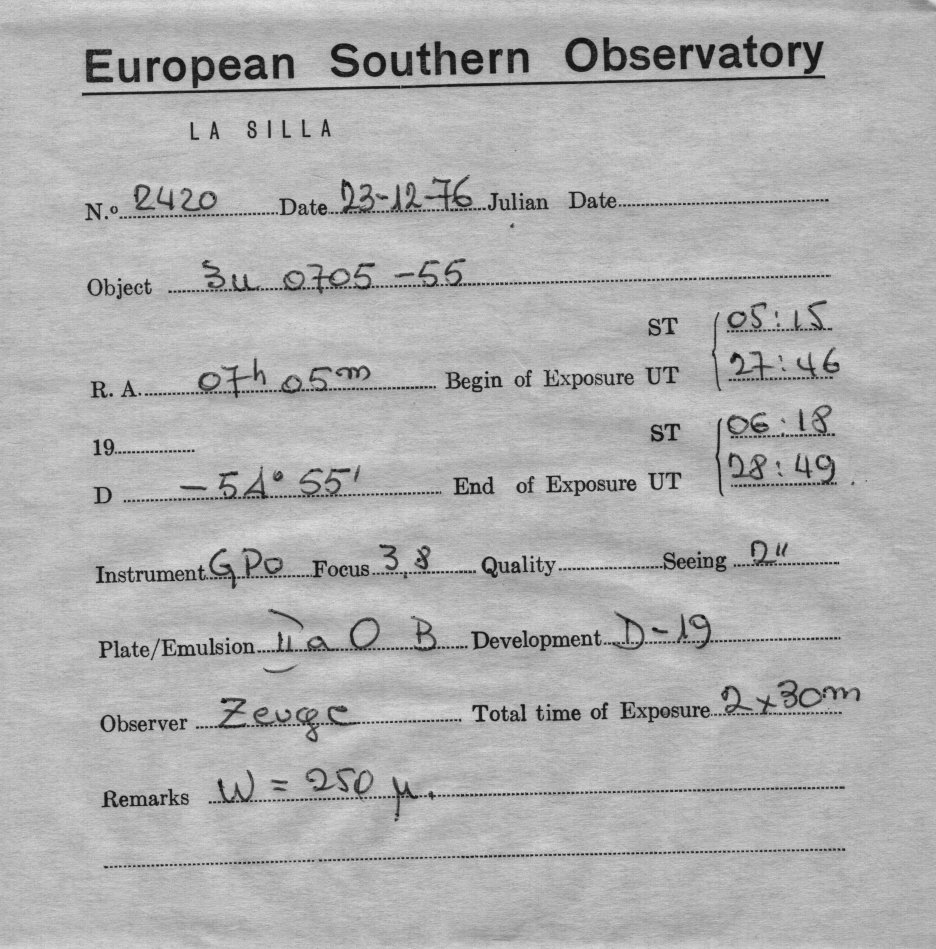 European Southern Observatory
LA SILLA
N.º 2420 Date 23-12-76 Julian Date
Object 3U 0705 -55
ST 05:15
R. A. 07h 05m Begin of Exposure UT 27:46
19 ST 06:18
D -54° 55' End of Exposure UT 28:49
Instrument GPO Focus 3,8 Quality Seeing 2"
Plate/Emulsion II a O B Development D-19
Observer Total time of Exposure 2x30m
Remarks W = 250 µ.